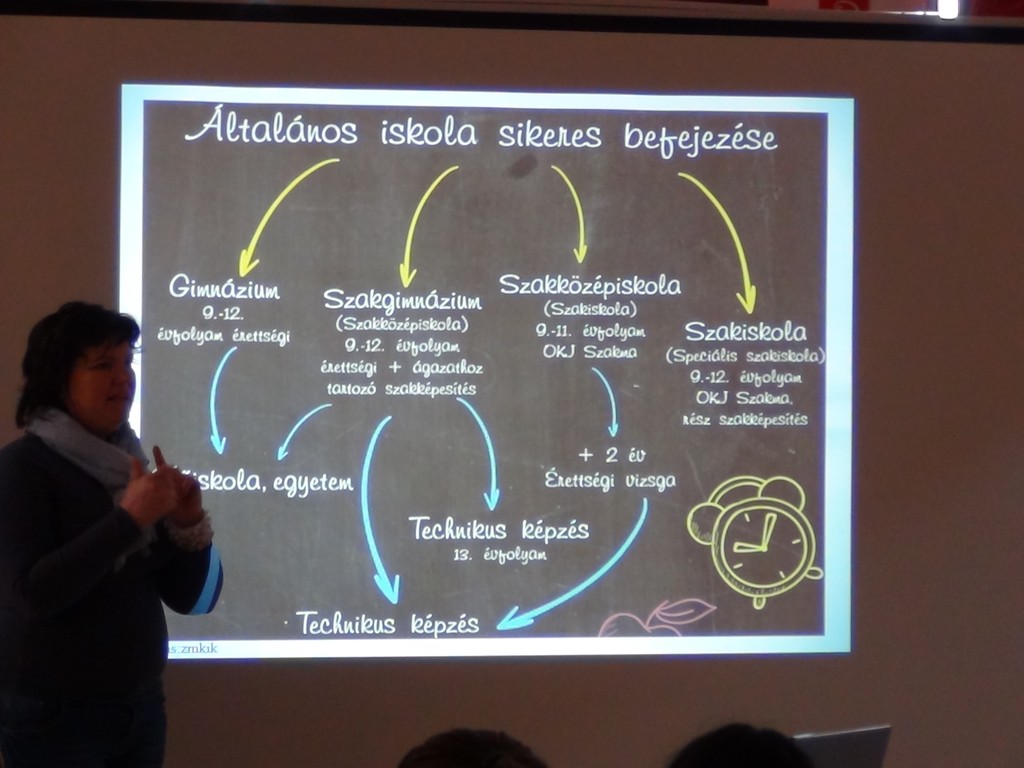 Általános iskola sikeres befejezése
Gimnázium
9.-12.
évfolyam érettségi
Szakgimnázium
(Szakközépiskola)
9.-12. évfolyam
érettségi + ágazathoz
tartozó szakképesítés
Szakközépiskola
(Szakiskola)
9.-11. évfolyam
OKJ Szakma
Szakiskola
(Speciális szakiskola)
9.-12. évfolyam
OKJ Szakma,
rész szakképesítés
egyetem
+ 2 év
Érettségi vizsga
Technikus képzés
13. évfolyam
Technikus képzés